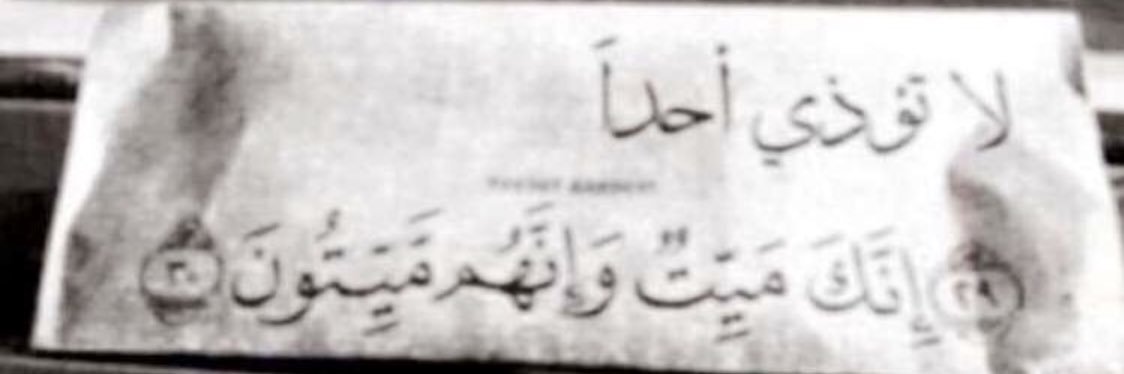 لا تؤذي أحداَ
٢٩ إِنَّكَ مَيِّتٌ وَإِنَّهُم مَّيِّتُونَ ٣٠